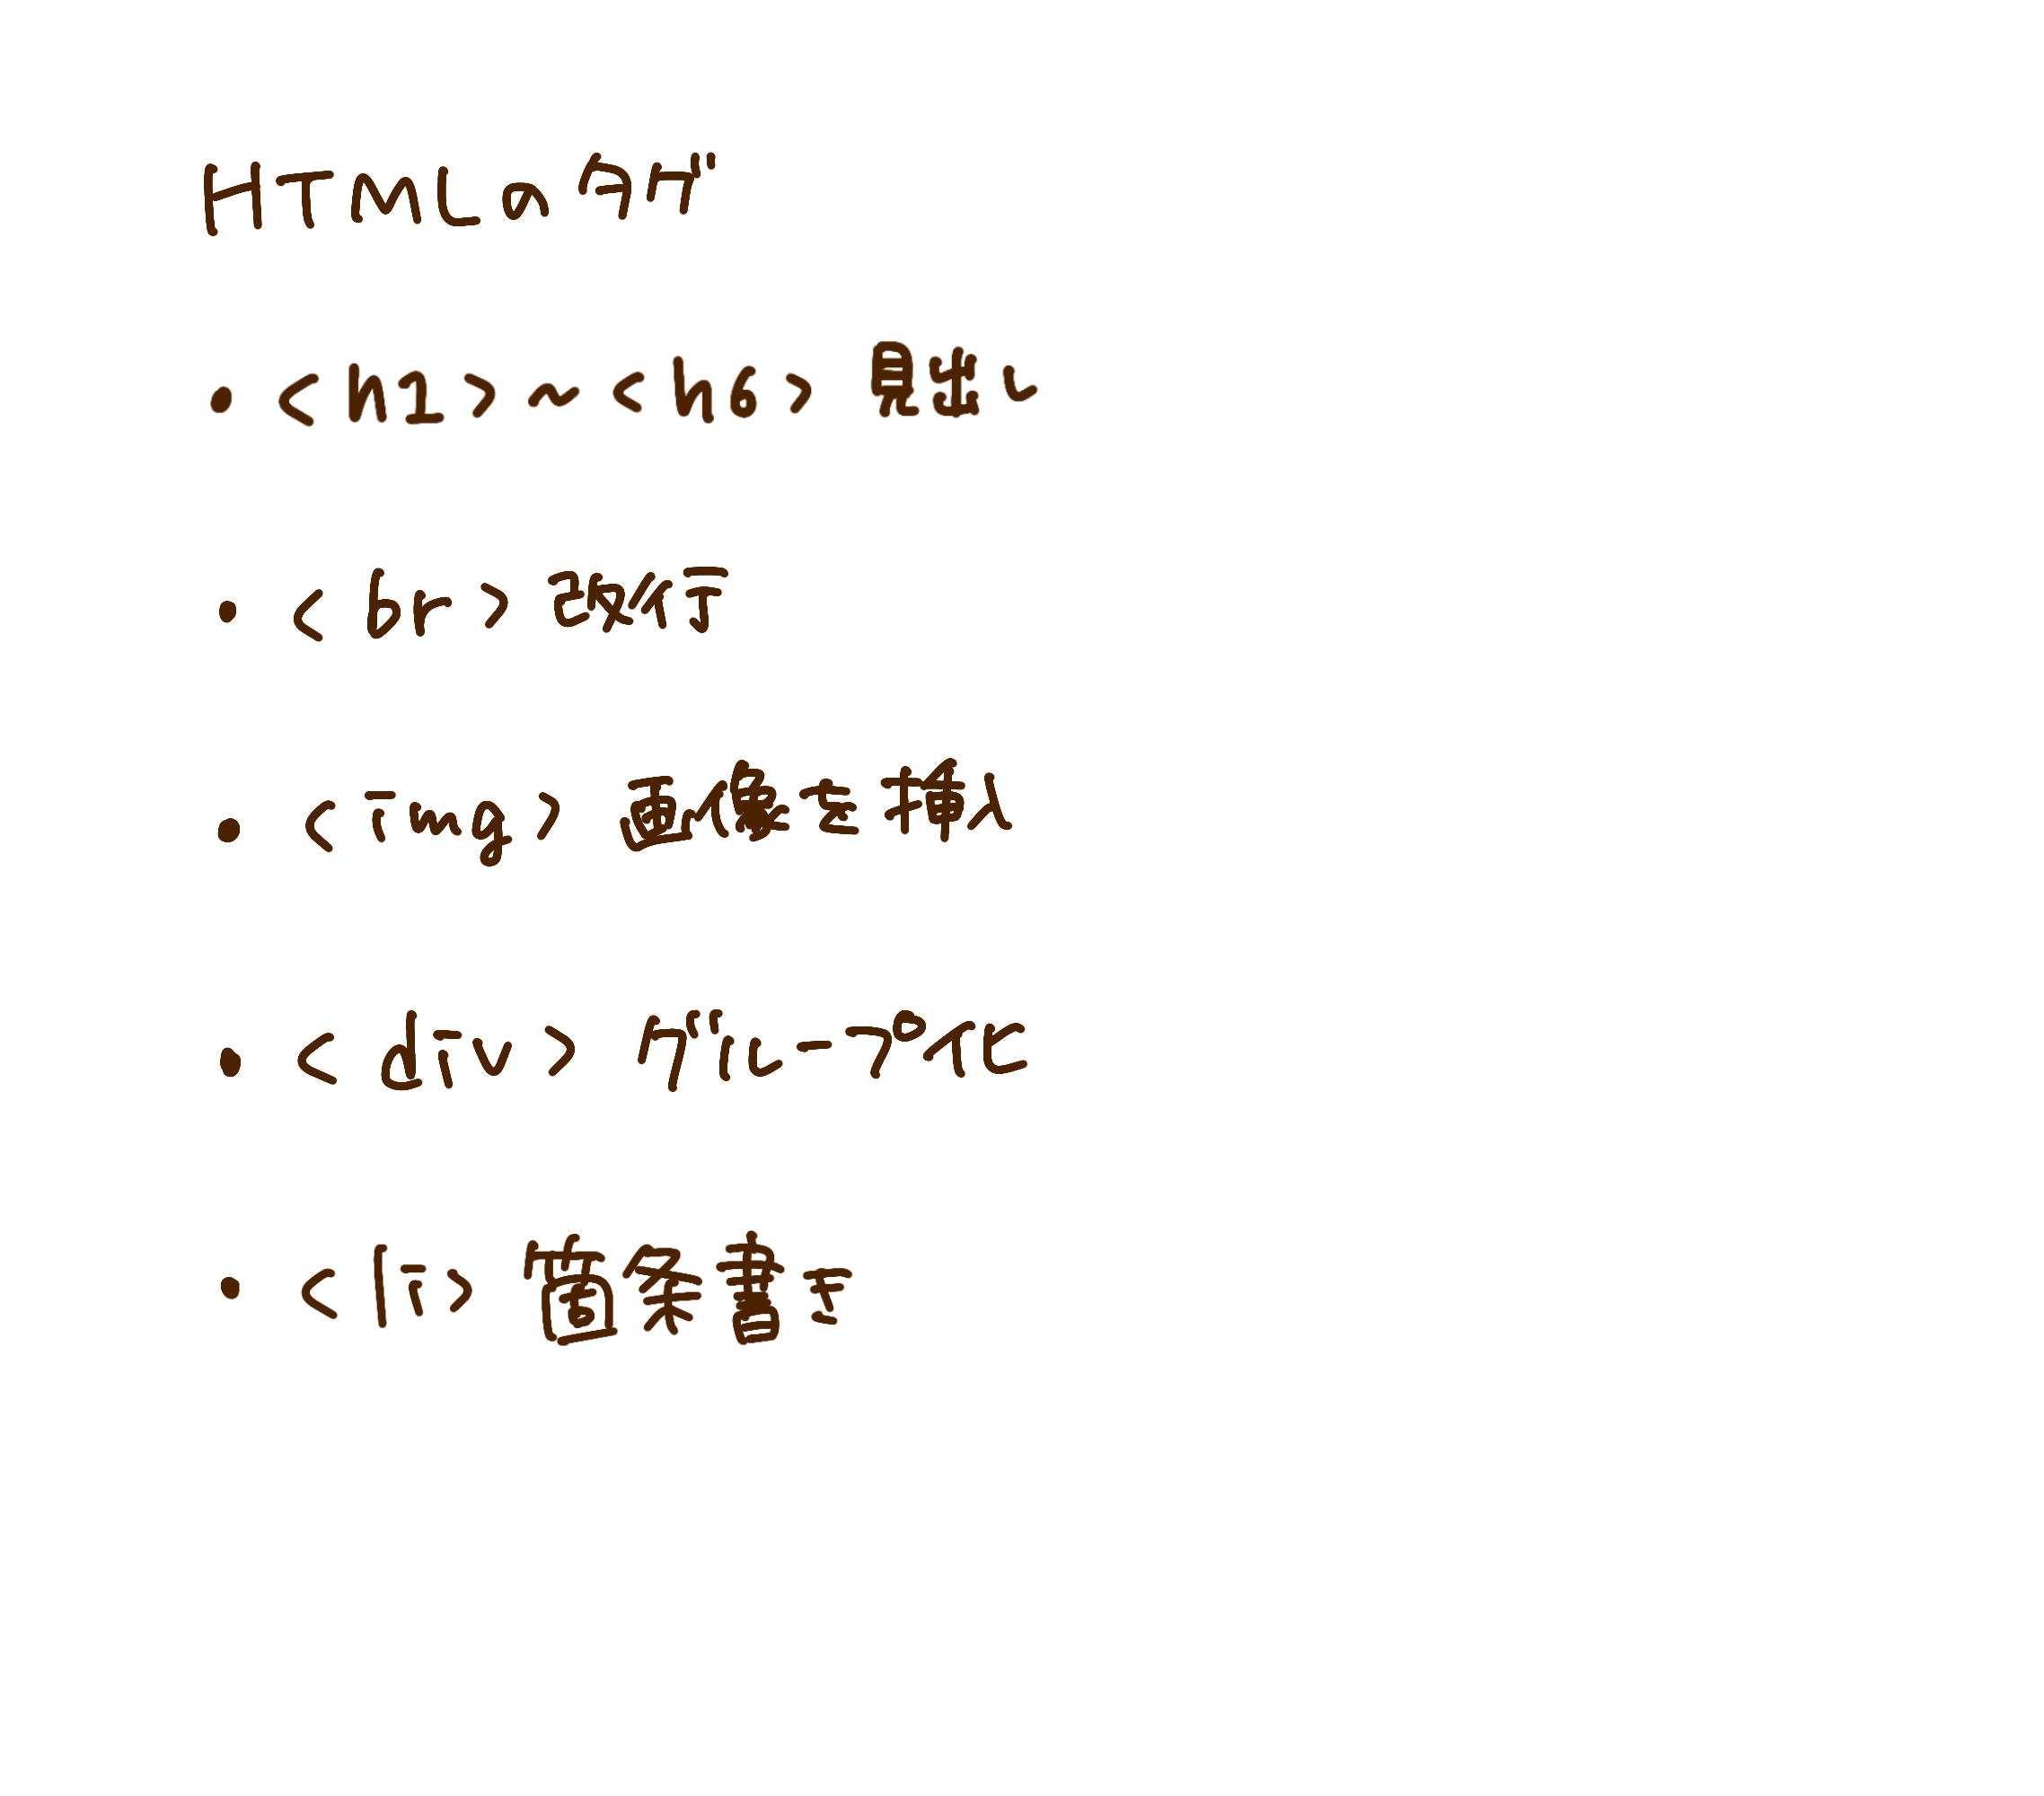 HTMLのタグ
・<h1>~<h6> 見出し
・<br> 改行
・<img> 画像を挿入
・<div> グループ化
・<li> 箇条書き